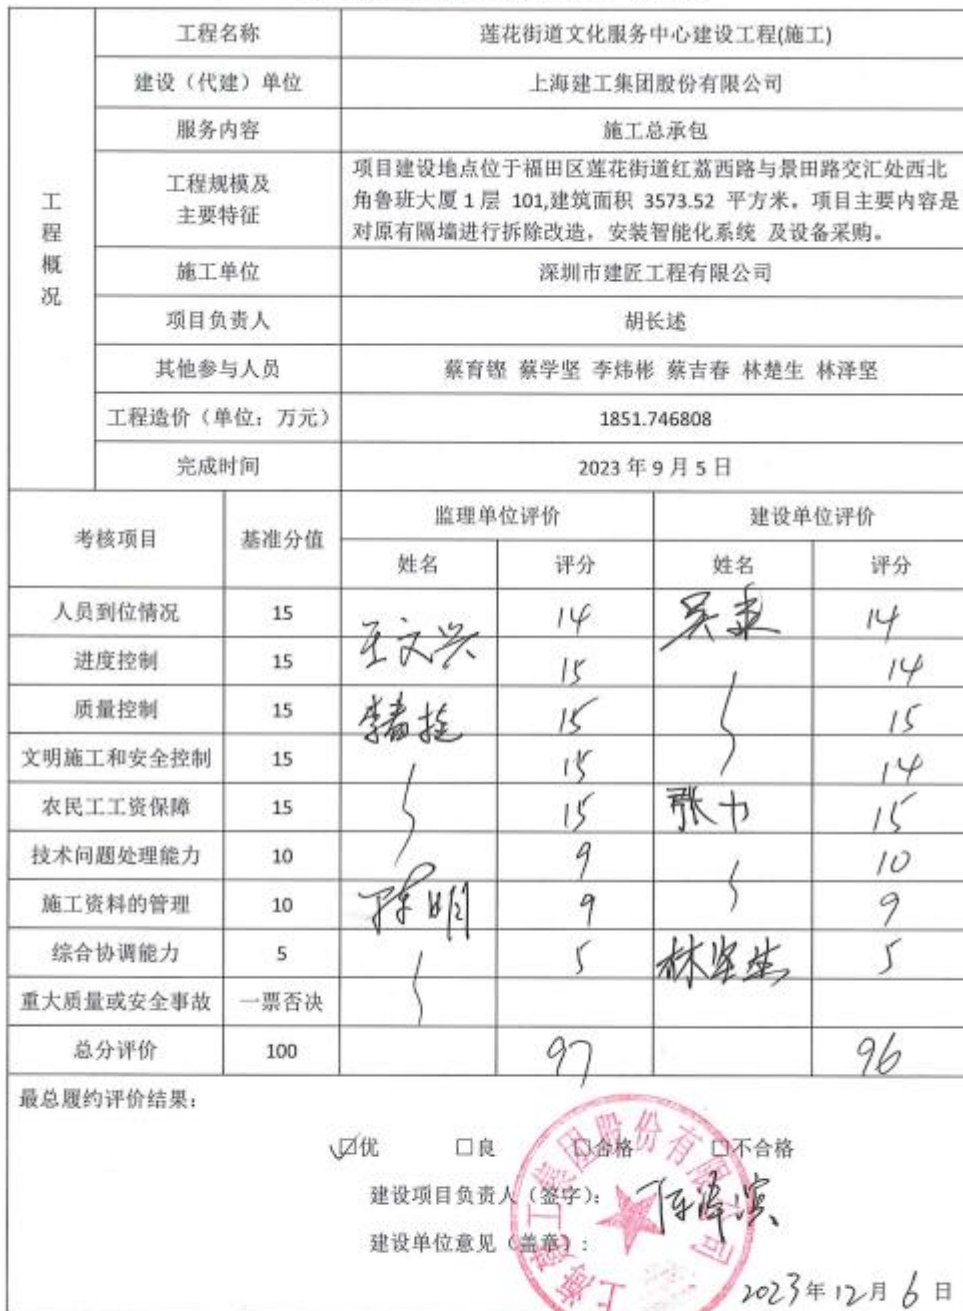 工程概况
工程名称 莲花街道文化服务中心建设工程(施工)
建设（代建）单位 上海建工集团股份有限公司
服务内容 施工总承包
工程规模及主要特征
项目建设地点位于福田区莲花街道红荔西路与景田路交汇处西北
角鲁班大厦 1 层 101,建筑面积 3573.52 平方米。项目主要内容是
对原有隔墙进行拆除改造，安装智能化系统 及设备采购。
施工单位 深圳市建匠工程有限公司
项目负责人 胡长述
其他参与人员 蔡育铿 蔡学坚 李炜彬 蔡吉春 林楚生 林泽坚
工程造价（单位：万元） 1851.746808
完成时间 2023 年 9 月 5 日
考核项目 基准分值 监理单位评价 建设单位评价
姓名 评分 姓名 评分
人员到位情况 15 王文兴 14 14
进度控制 15 15 14
质量控制 15 15 15
文明施工和安全控制 15 15 14
农民工工资保障 15 15 张力 15
技术问题处理能力 10 9 10
施工资料的管理 10 陈明 9 9
综合协调能力 5 5 林坚生 5
重大质量或安全事故 一票否决
总分评价 100 97 96
最总履约评价结果：
☑优 □良 □合格 □不合格
建设项目负责人（签字）：
建设单位意见（盖章）：
上海建工集团股份有限公司
2023年12月6日